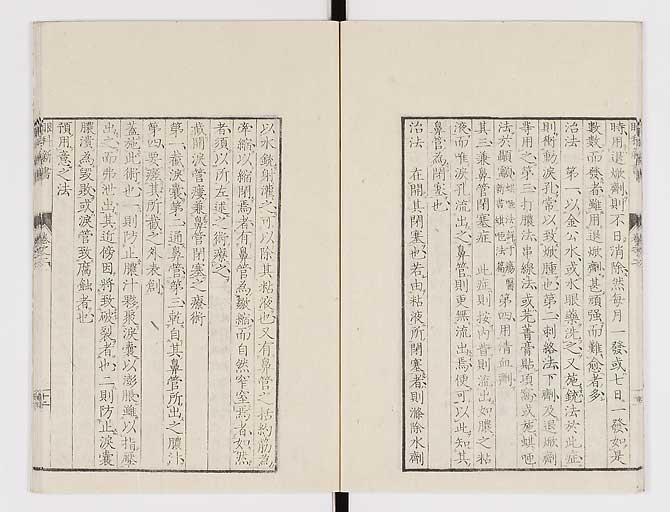 時用退焮劑則不日消除然每月一發或七日一發如是
數數而發者雖用退焮劑甚頑強而難愈者多
治法 第一以金公水或水眼藥洗之又施銃法於此症
則衝動淚孔常以致焮腫也第二刺絡法下劑及退焮劑
等用之第三打膿法串線法或芫菁膏貼項窩或施蜞
法於顳顬 第四用清血劑
其三兼鼻管閉塞症 此症則按內眥則流出如膿之粘
液而唯淚孔流出之鼻管則更無流出焉便可以此知其
鼻管為閉塞也
治法 在開其閉塞也若由粘液所閉塞者則滌除水劑
以水銃射灌之可以除其粘液也又有鼻管之括約筋為
牽縮以縮閉焉者有鼻管為皺縮而自然窄窒焉者如然
者須以所左述之術療之
截開淚管瘻兼鼻管閉塞之療術
第一截淚囊第二通鼻管第三乾自其鼻管所出之膿汁
第四要痊其所截之外表創
蓋施此術也一則防止膿汁夥聚淚囊以膨脹雖以指壓
出之而弗泄出其近傍因將致破裂者也二則防止淚囊
膿潰為毀敗或淚管致腐蝕者也
預用意之法
眼科新書